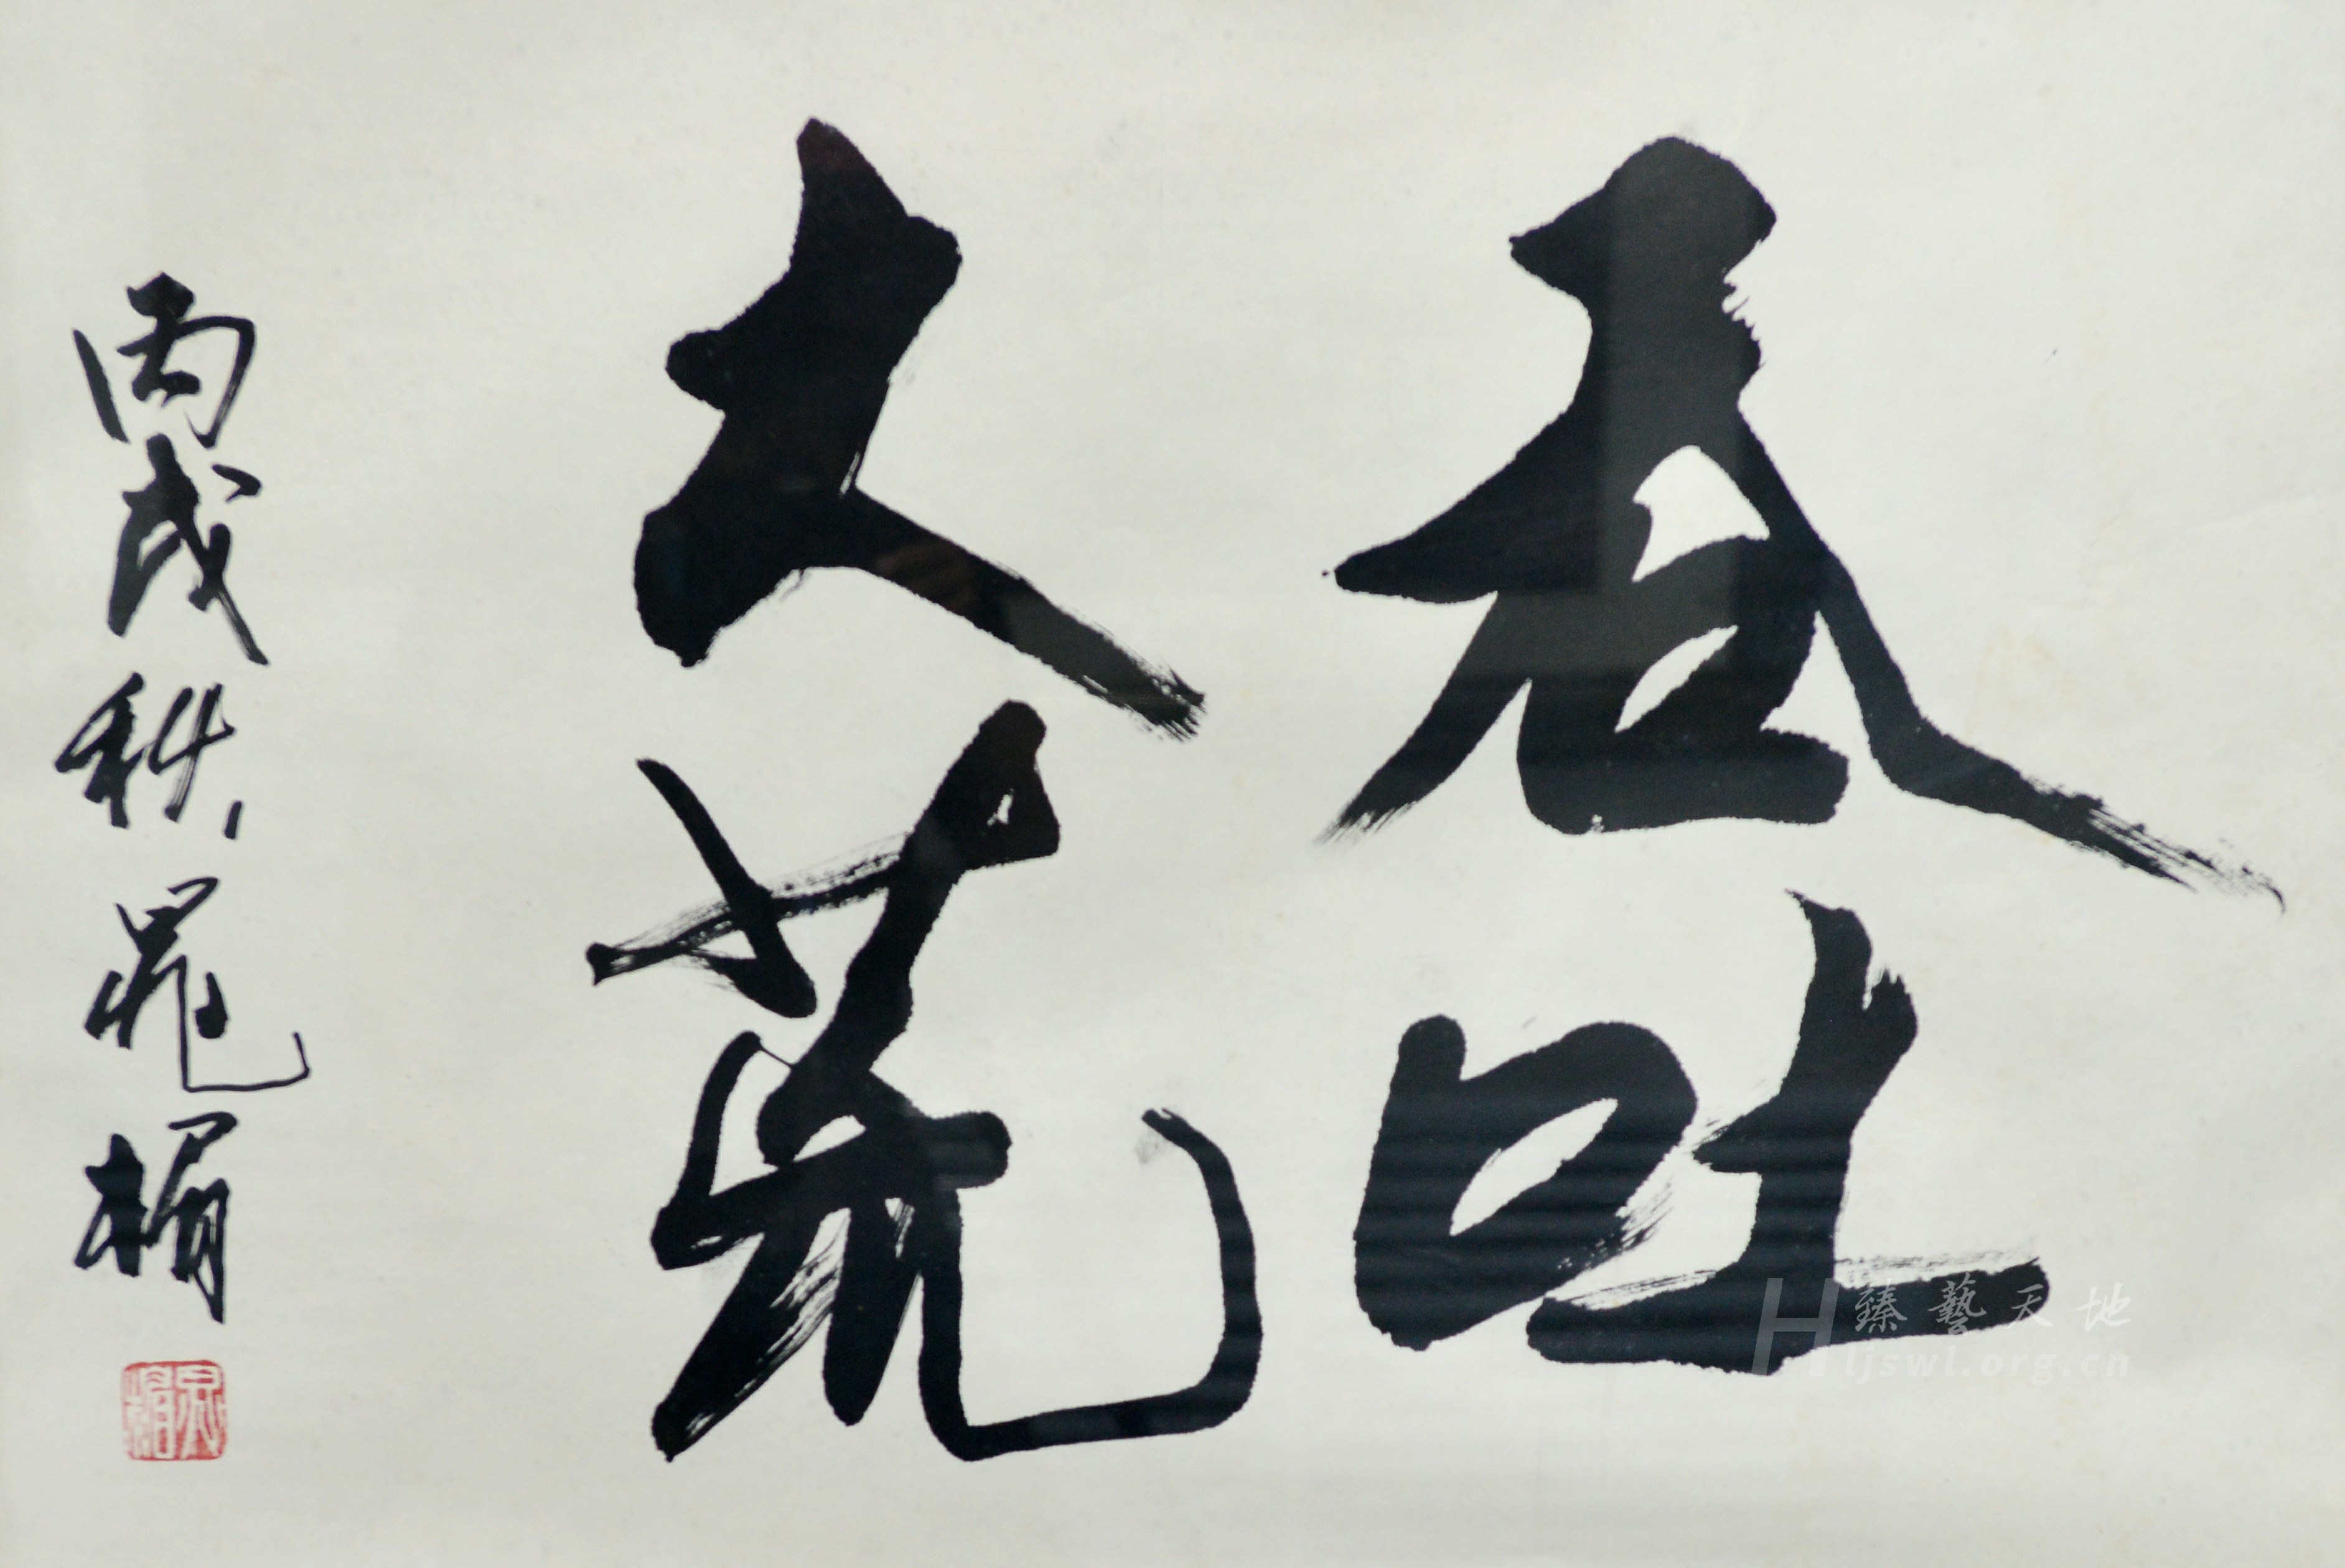 吞吐
大荒
丙戌秋晁楣
晁楣
臻藝天地
Hljswl.org.cn